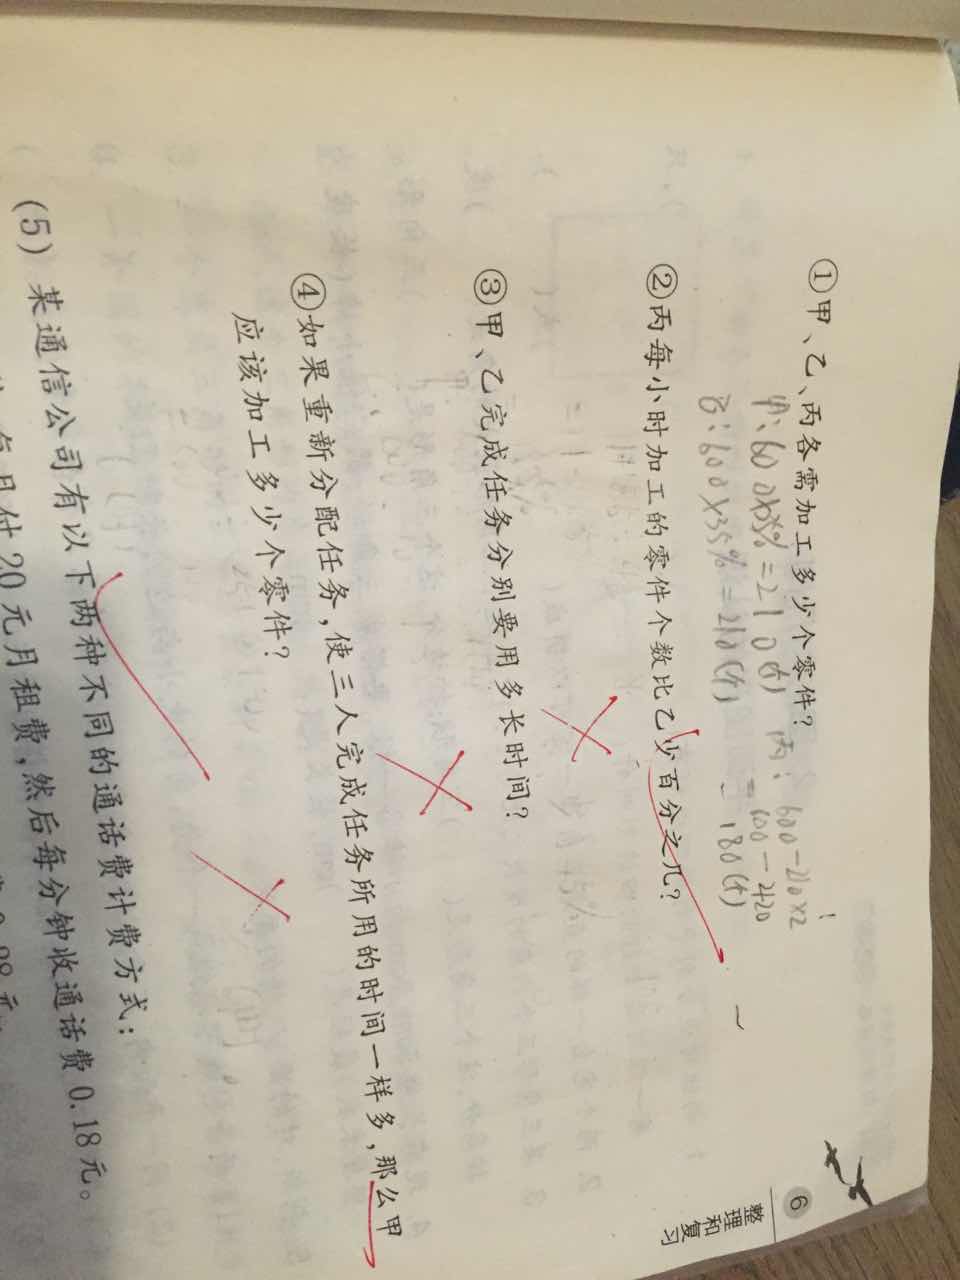 6
整理和复习
①甲、乙、丙各需加工多少个零件?
甲:600×35%=210(个) 丙:600-210×2
=600-420
乙:600×35%=210(个) =180(个)
②丙每小时加工的零件个数比乙少百分之几?
③甲、乙完成任务分别要用多长时间?
④如果重新分配任务,使三人完成任务所用的时间一样多,那么甲
应该加工多少个零件?
(5)某通信公司有以下两种不同的通话费计费方式:
每月付20元月租费,然后每分钟收通话费0.18元。